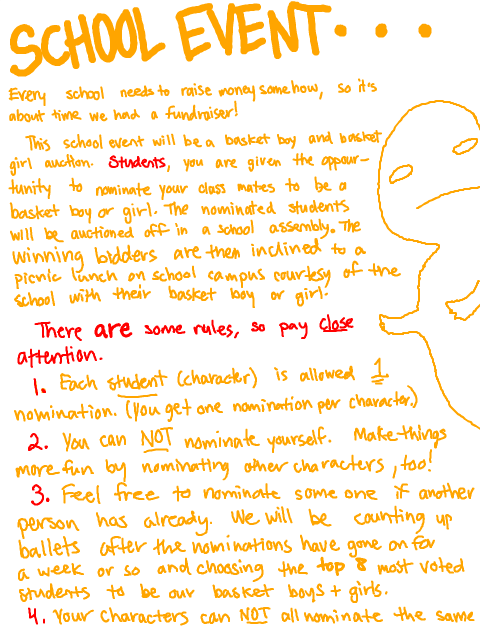 SCHOOL EVENT...
Every school needs to raise money somehow, so it's
about time we had a fundraiser!
This school event will be a basket boy and basket
girl auction. Students, you are given the oppour-
tunity to nominate your class mates to be a
basket boy or girl. The nominated students
will be auctioned off in a school assembly. The
winning bidders are then inclined to a
picnic lunch on school campus courtesy of the
school with their basket boy or girl.
There are some rules, so pay close
attention.
1. Each student (character) is allowed 1
nomination. (You get one nomination per character.)
2. You can NOT nominate yourself. Make things
more fun by nominating other characters, too!
3. Feel free to nominate some one if another
person has already. We will be counting up
ballets after the nominations have gone on for
a week or so and choosing the top 8 most voted
students to be our basket boys + girls.
4. Your characters can NOT all nominate the same